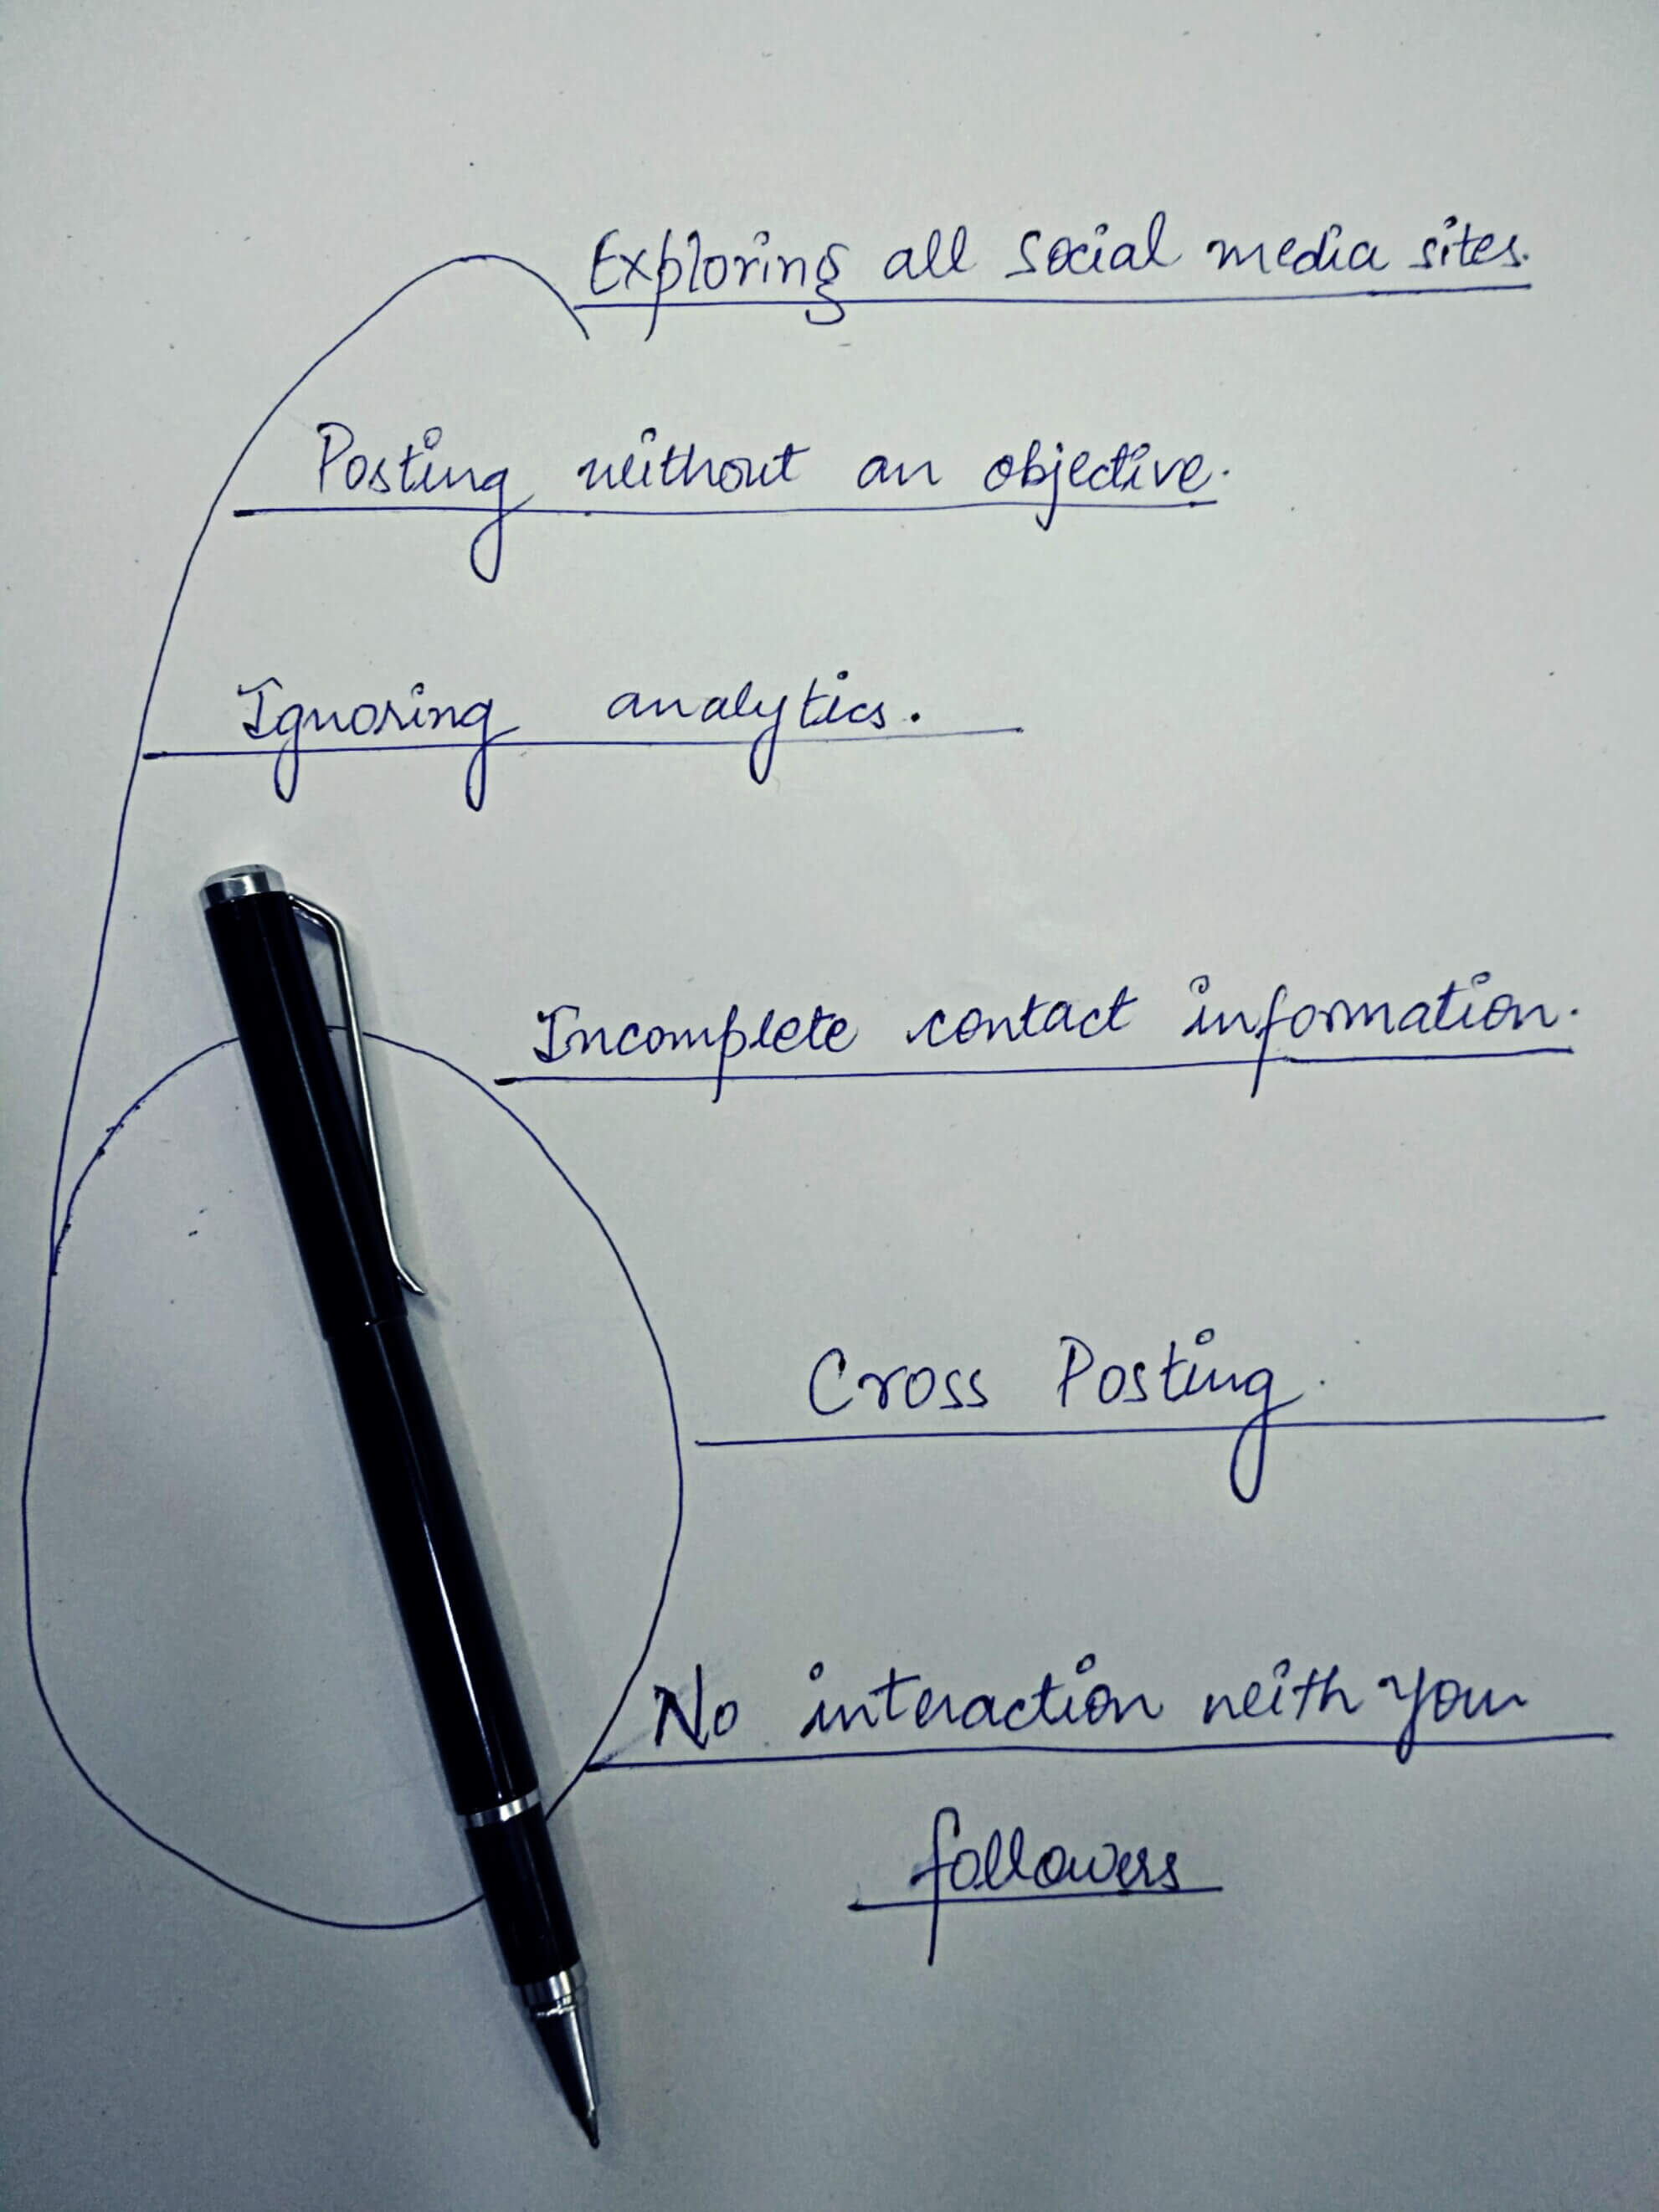 Exploring all social media sites.
Posting without an objective.
Ignoring analytics.
Incomplete contact information.
Cross Posting.
No interaction with your
followers